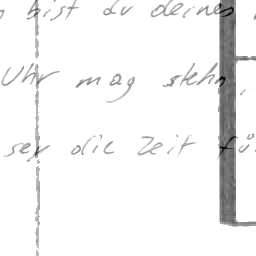 bist du deines
Uhr mag stehn,
ser die Zeit für